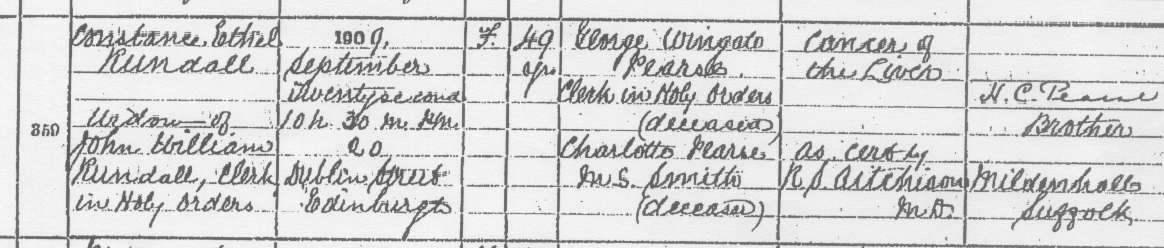 Constance Ethel
Rundall
Widow of
John William
Rundall, Clerk
in Holy Orders
359
1909,
September
Twenty second
10h 30m P.M.
20
Dublin Street
Edinburgh
F.
49
yrs
George Wingate
Pearse
Clerk in Holy Orders
(deceased)
Charlotte Pearse
M.S. Smith
(deceased)
Cancer of
the Liver
as cert by
R.S. Aitchison
M.D.
H. C. Pearse
Brother
Mildenhall
Suffolk